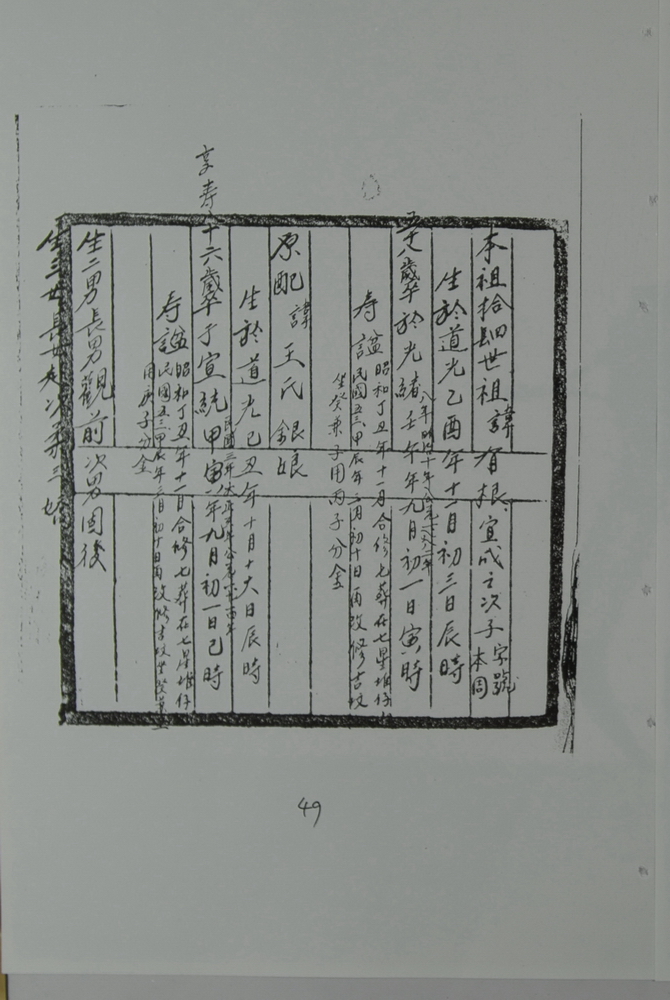 本祖拾四世祖諱 有根 宣成之次子 字號本周
生於道光乙酉年十一月初三日辰時
卒於光緒壬午年九月初一日寅時
八年明治十年公元一八八二年
寿 謚 昭和丁丑年十一月合修七葬在七星堆仔
民國五三甲辰年二月初十日再改修吉坟
坐癸兼子用丙子分金
原配 諱 王氏 銀娘
生於道光己丑年十月十六日辰時
享寿 十六歲卒于宣統甲寅年九月初一日巳時
民國三年大正三年公元
寿 謚 昭和丁丑年十一月合修七葬在七星堆仔
民國五三甲辰年二月初十日再改修吉坟坐癸兼
用庚子分金
生二男長男觀前次男因後
生三女長女 次
49